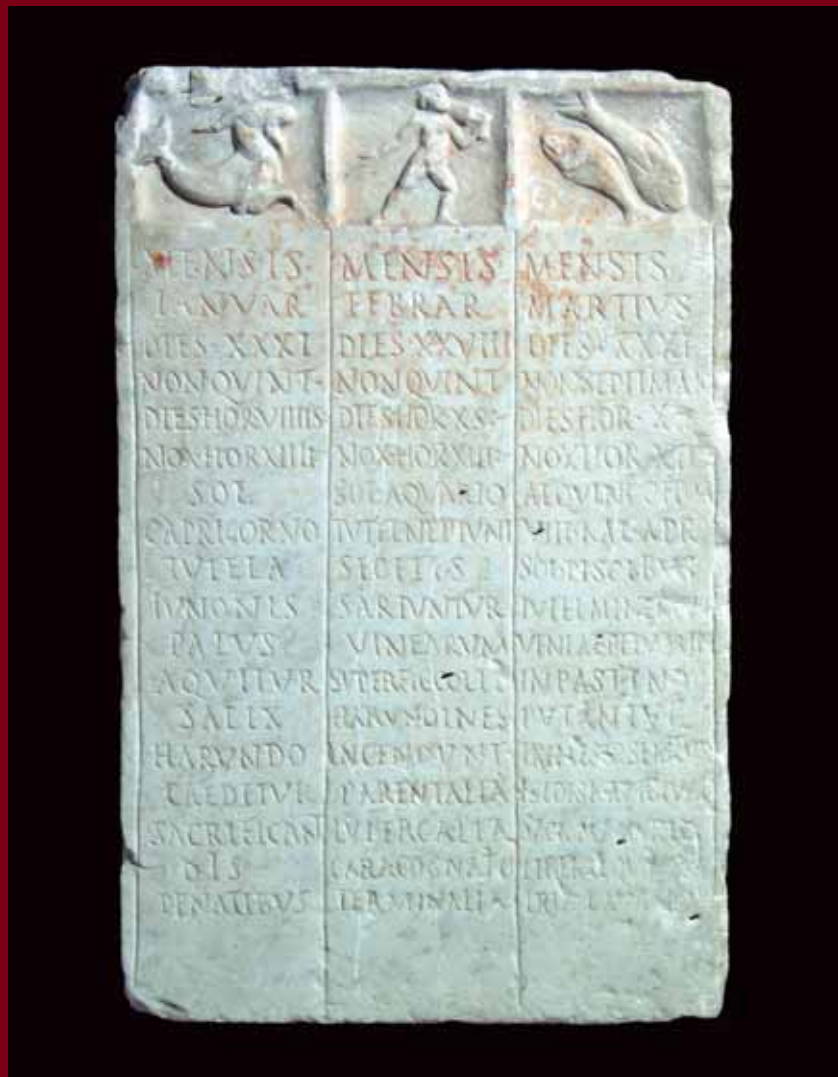 MENSIS
IANVAR
DIES·XXXI
NONQVINT·
DIESHORVIIIIS
NOXHORXIIII
SOL
CAPRICORNO
TVTELA
IVNONIS
PALVS
AQVITVR
SALIX
HARVNDO
CAEDITVR
SACRIFICAN
DIS
PENATIBVS
MENSIS
FEBRAR
DIES·XXVIII
NONQVINT
DIESHORXS·
NOXHORXIII
SOLAQVARIO
TVTELNEPTVNI
SEGETES
SARIVNTVR
VINEARVM
SVPERFICCOLIT
HARVNDINES
INCENDVNT
PARENTALIA
LVPERCALIA
CARACOGNATIO
TERMINALIA
MENSIS
MARTIVS
DIES·XXXI
NONSEPTIMAN
DIESHOR·X
NOXHOR·XII
VIIIKAL·APR
SOLPISCIBVS
TVTELMINERVAE
INPASTINO
PVTANTVR